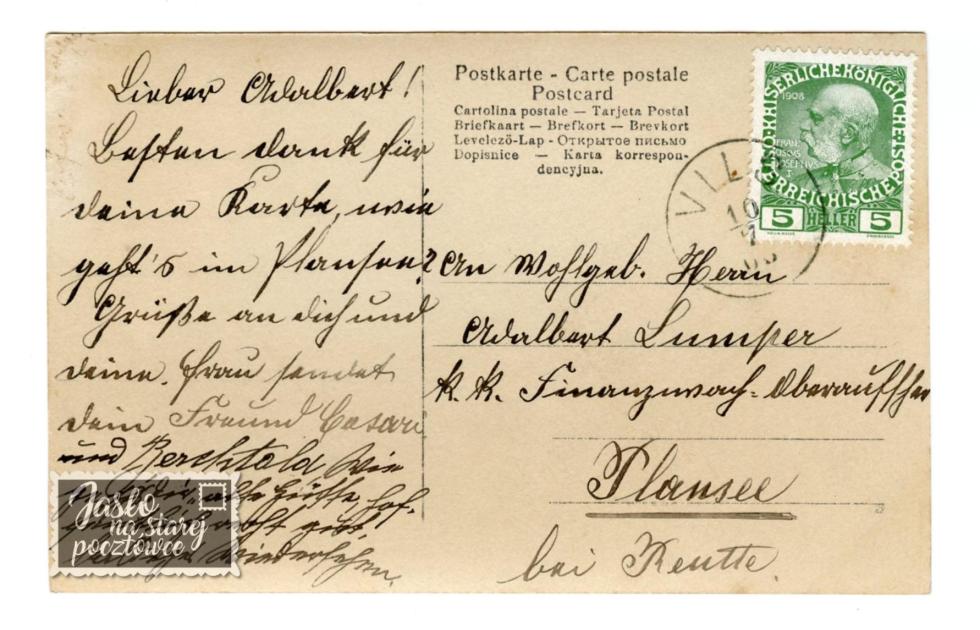 Lieber Adalbert!
Besten Dank für
deine Karte, wie
geht's im Plansee?
Grüße an dich und
deine Frau sendet
dein Freund Cäsar
und Berchtold Wie
alte Hütte, hof-
wiedersehen.
Jasło
na starej
pocztówce
Postkarte - Carte postale
Postcard
Cartolina postale — Tarjeta Postal
Briefkaart — Brefkort — Brevkort
Levelezö-Lap - Открытое письмо
Dopisnice — Karta korrespon-
dencyjna.
KAISERLICHE KÖNIGLICHE ÖSTERREICHISCHE POST
1908
5 HELLER 5
10
An Wohlgeb. Herrn
Adalbert Lumper
k. k. Finanzwach-Oberaufseher
Plansee
bei Reutte.